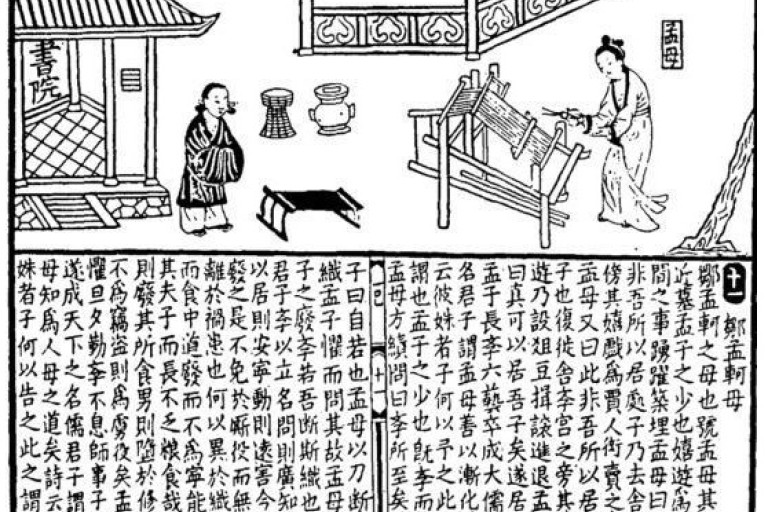 書院
孟母
十一 鄒孟軻母
鄒孟軻之母也號孟母其
近墓孟子之少也嬉遊為
間之事踴躍築埋孟母曰
非吾所以居處子乃去舍
傍其嬉戲為賈人衒賣之
孟母又曰此非吾所以居
子也復徙舍斈宮之旁其
遊乃設俎豆揖讓進退孟
曰真可以居吾子矣遂居
孟子長斈六藝卒成大儒
名君子謂孟母善以漸化
云彼姝者子何以予之此
謂也孟子之少也既斈而
孟母方績問曰斈所至矣
子曰自若也孟母以刀斷
織孟子懼而問其故孟母
子之廢斈若吾斷斯織也
君子斈以立名問則廣知
以居則安寧動則遠害今
廢之是不免於廝役而無
離於禍患也何以異於織
而食中道廢而不為寧能
其夫子而長不乏粮食哉
則廢其所食男則隨於修
不為竊盜則為虜役矣孟
懼旦夕勤斈不息師事子
遂成天下之名儒君子謂
母知為人母之道矣詩云
姝者子何以告之此之謂